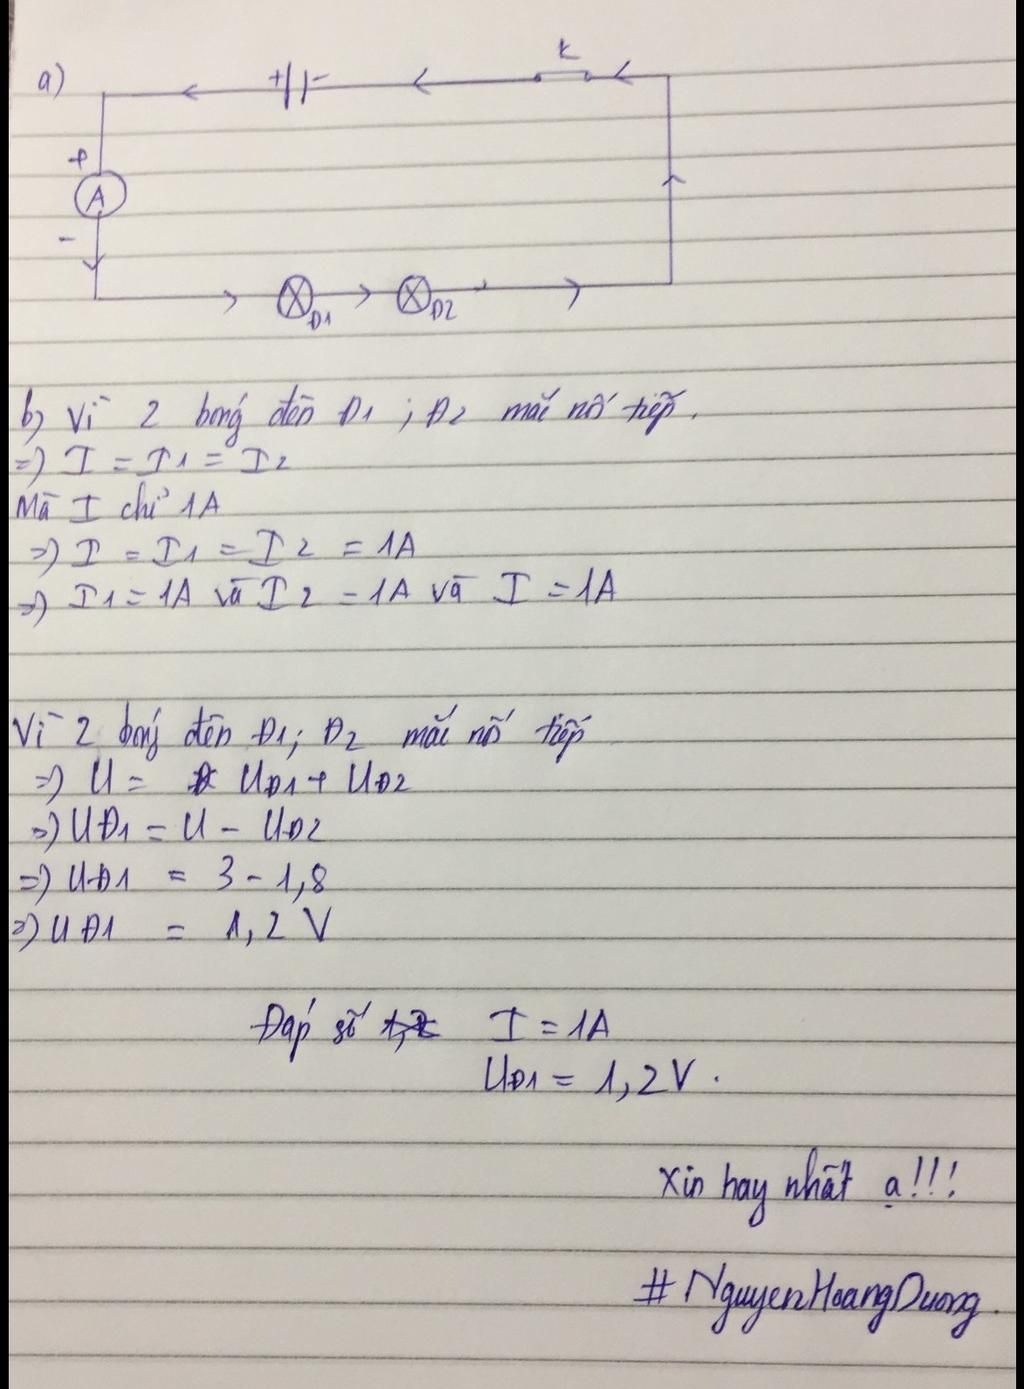 a)
K
+ -
+
A
-
Đ1 Đ2
b) Vì 2 bóng đèn Đ1 ; Đ2 mắc nối tiếp.
=> I = I1 = I2
Mà I chỉ 1A
=> I = I1 = I2 = 1A
=> I1 = 1A và I2 = 1A và I = 1A
Vì 2 bóng đèn Đ1; Đ2 mắc nối tiếp
=> U = UĐ1 + UĐ2
=> UĐ1 = U - UĐ2
=> UĐ1 = 3 - 1,8
=> UĐ1 = 1,2 V
Đáp số I = 1A
UĐ1 = 1,2V.
Xin hay nhất ạ!!!
#NguyenHoangDuong.